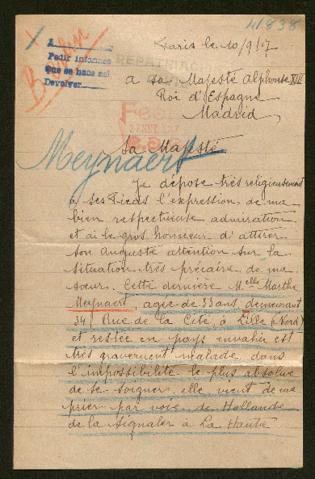 41838
Paris le 10/9/17
A
Pedir informes
Que se haga así
Devolver
REPATRIACIÓN
à sa Majesté Alphonse XIII
Roi d'Espagne
Madrid
Meynaert
Sa Majesté
Je dépose très religieusement
à ses Pieds l'expression de ma
bien respectueuse admiration
et ai le gros honneur d'attirer
son Auguste attention sur la
situation très précaire de ma
sœur. Cette dernière Melle Marthe
Meynaert, agée de 33 ans demeurant
34, Rue de la Cité, à Lille (Nord)
et restée en pays envahi est
très gravement malade dans
l'impossibilité le plus absolue
de se soigner, elle vient de me
prier par voie de Hollande
de la signaler à La Haute